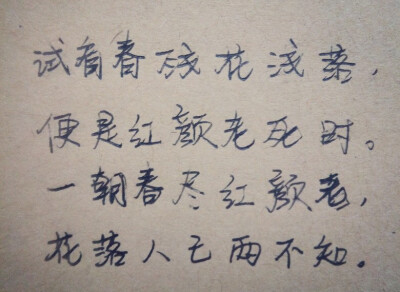 试看春残花浅落，
便是红颜老死时。
一朝春尽红颜老，
花落人亡两不知。